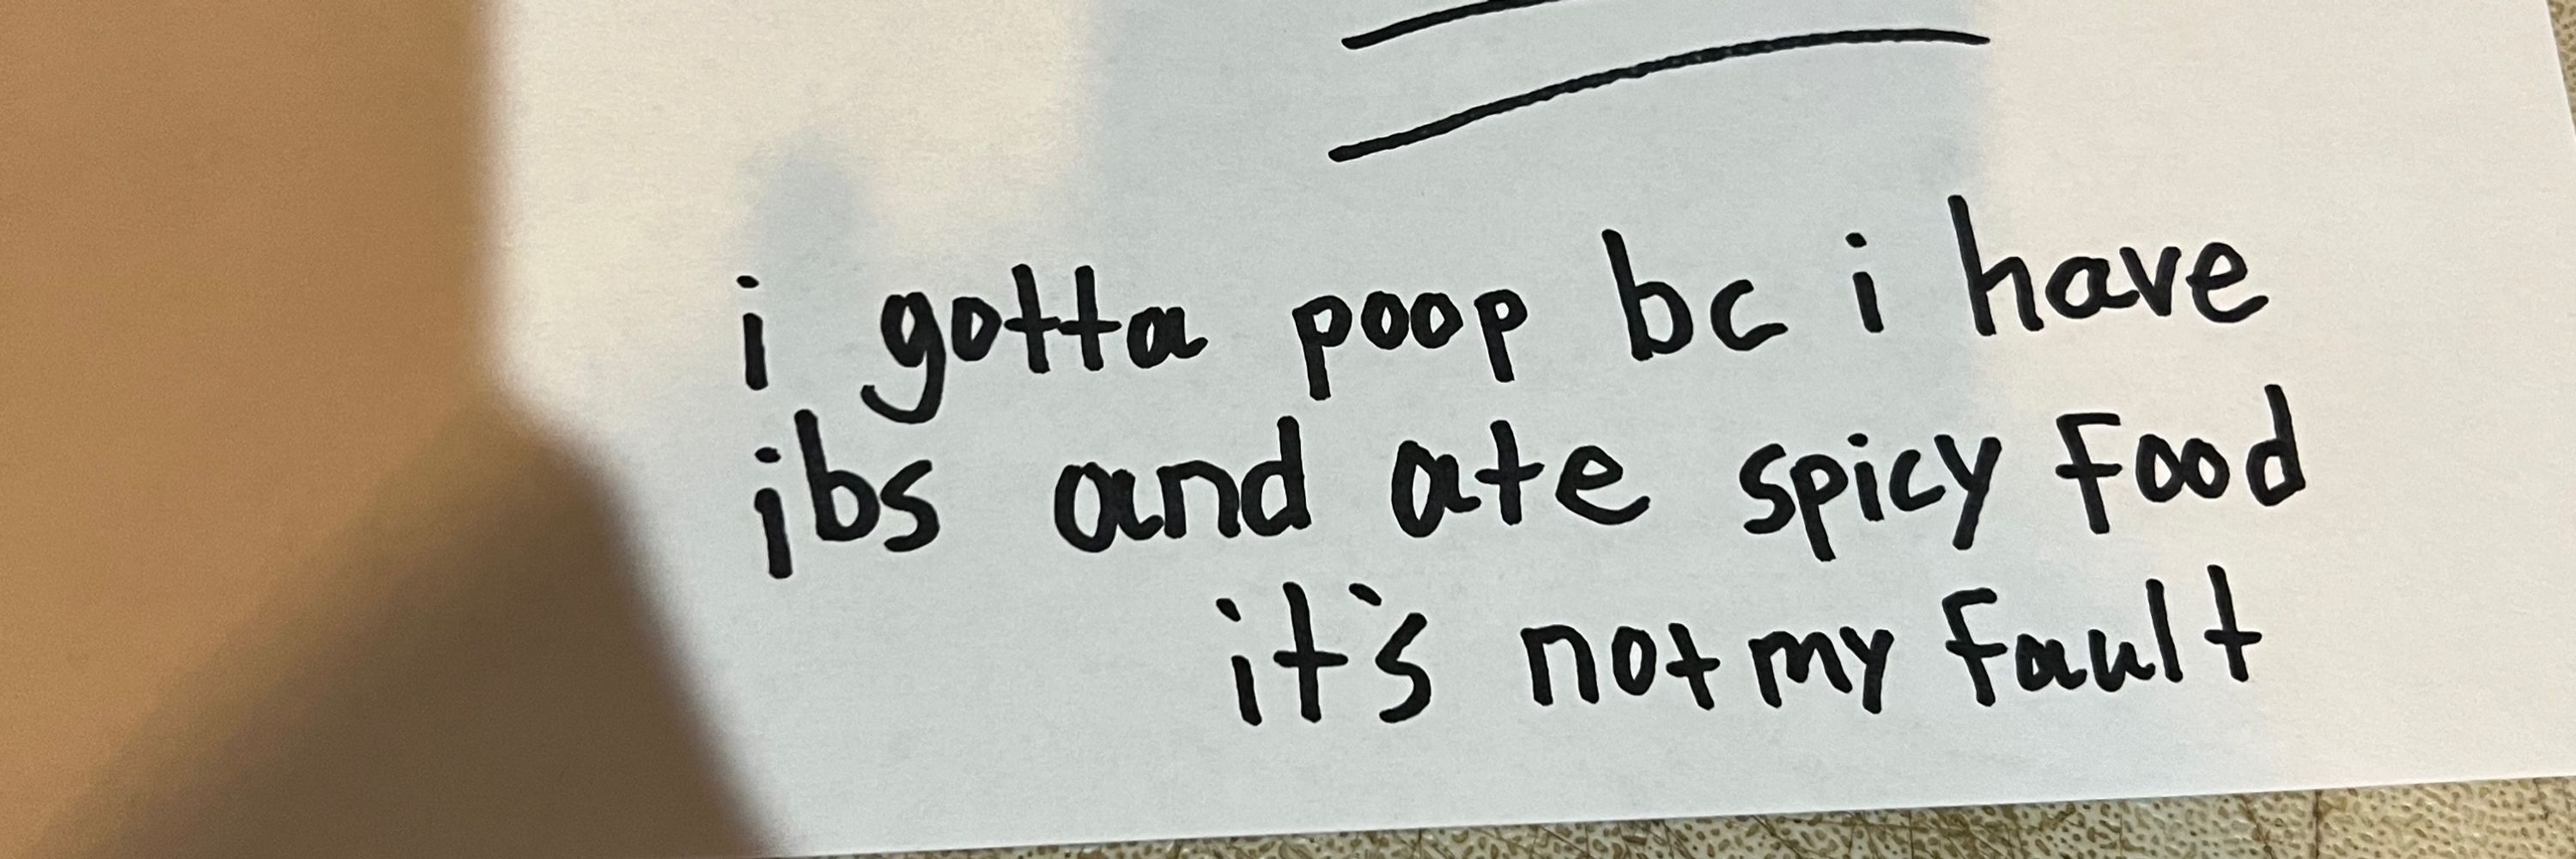 i gotta poop bc i have
ibs and ate spicy food
it's not my fault